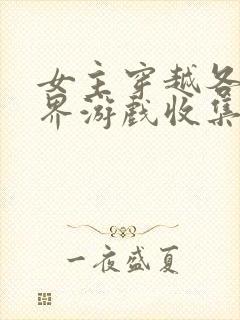 女主穿越各
界游戏收集
一夜盛夏